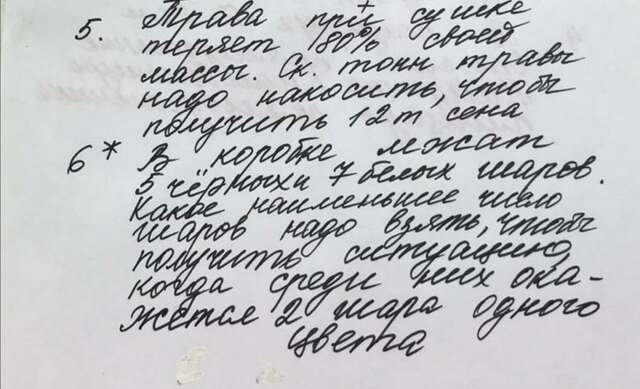 5. Трава при сушке
теряет 80% своей
массы. Ск. тонн травы
надо накосить, чтобы
получить 12т сена
6* В коробке лежат
5 чёрных и 7 белых шаров.
Какое наименьшее число
шаров надо взять, чтобы
получить ситуацию,
когда среди них ока-
жется 2 шара одного
цвета